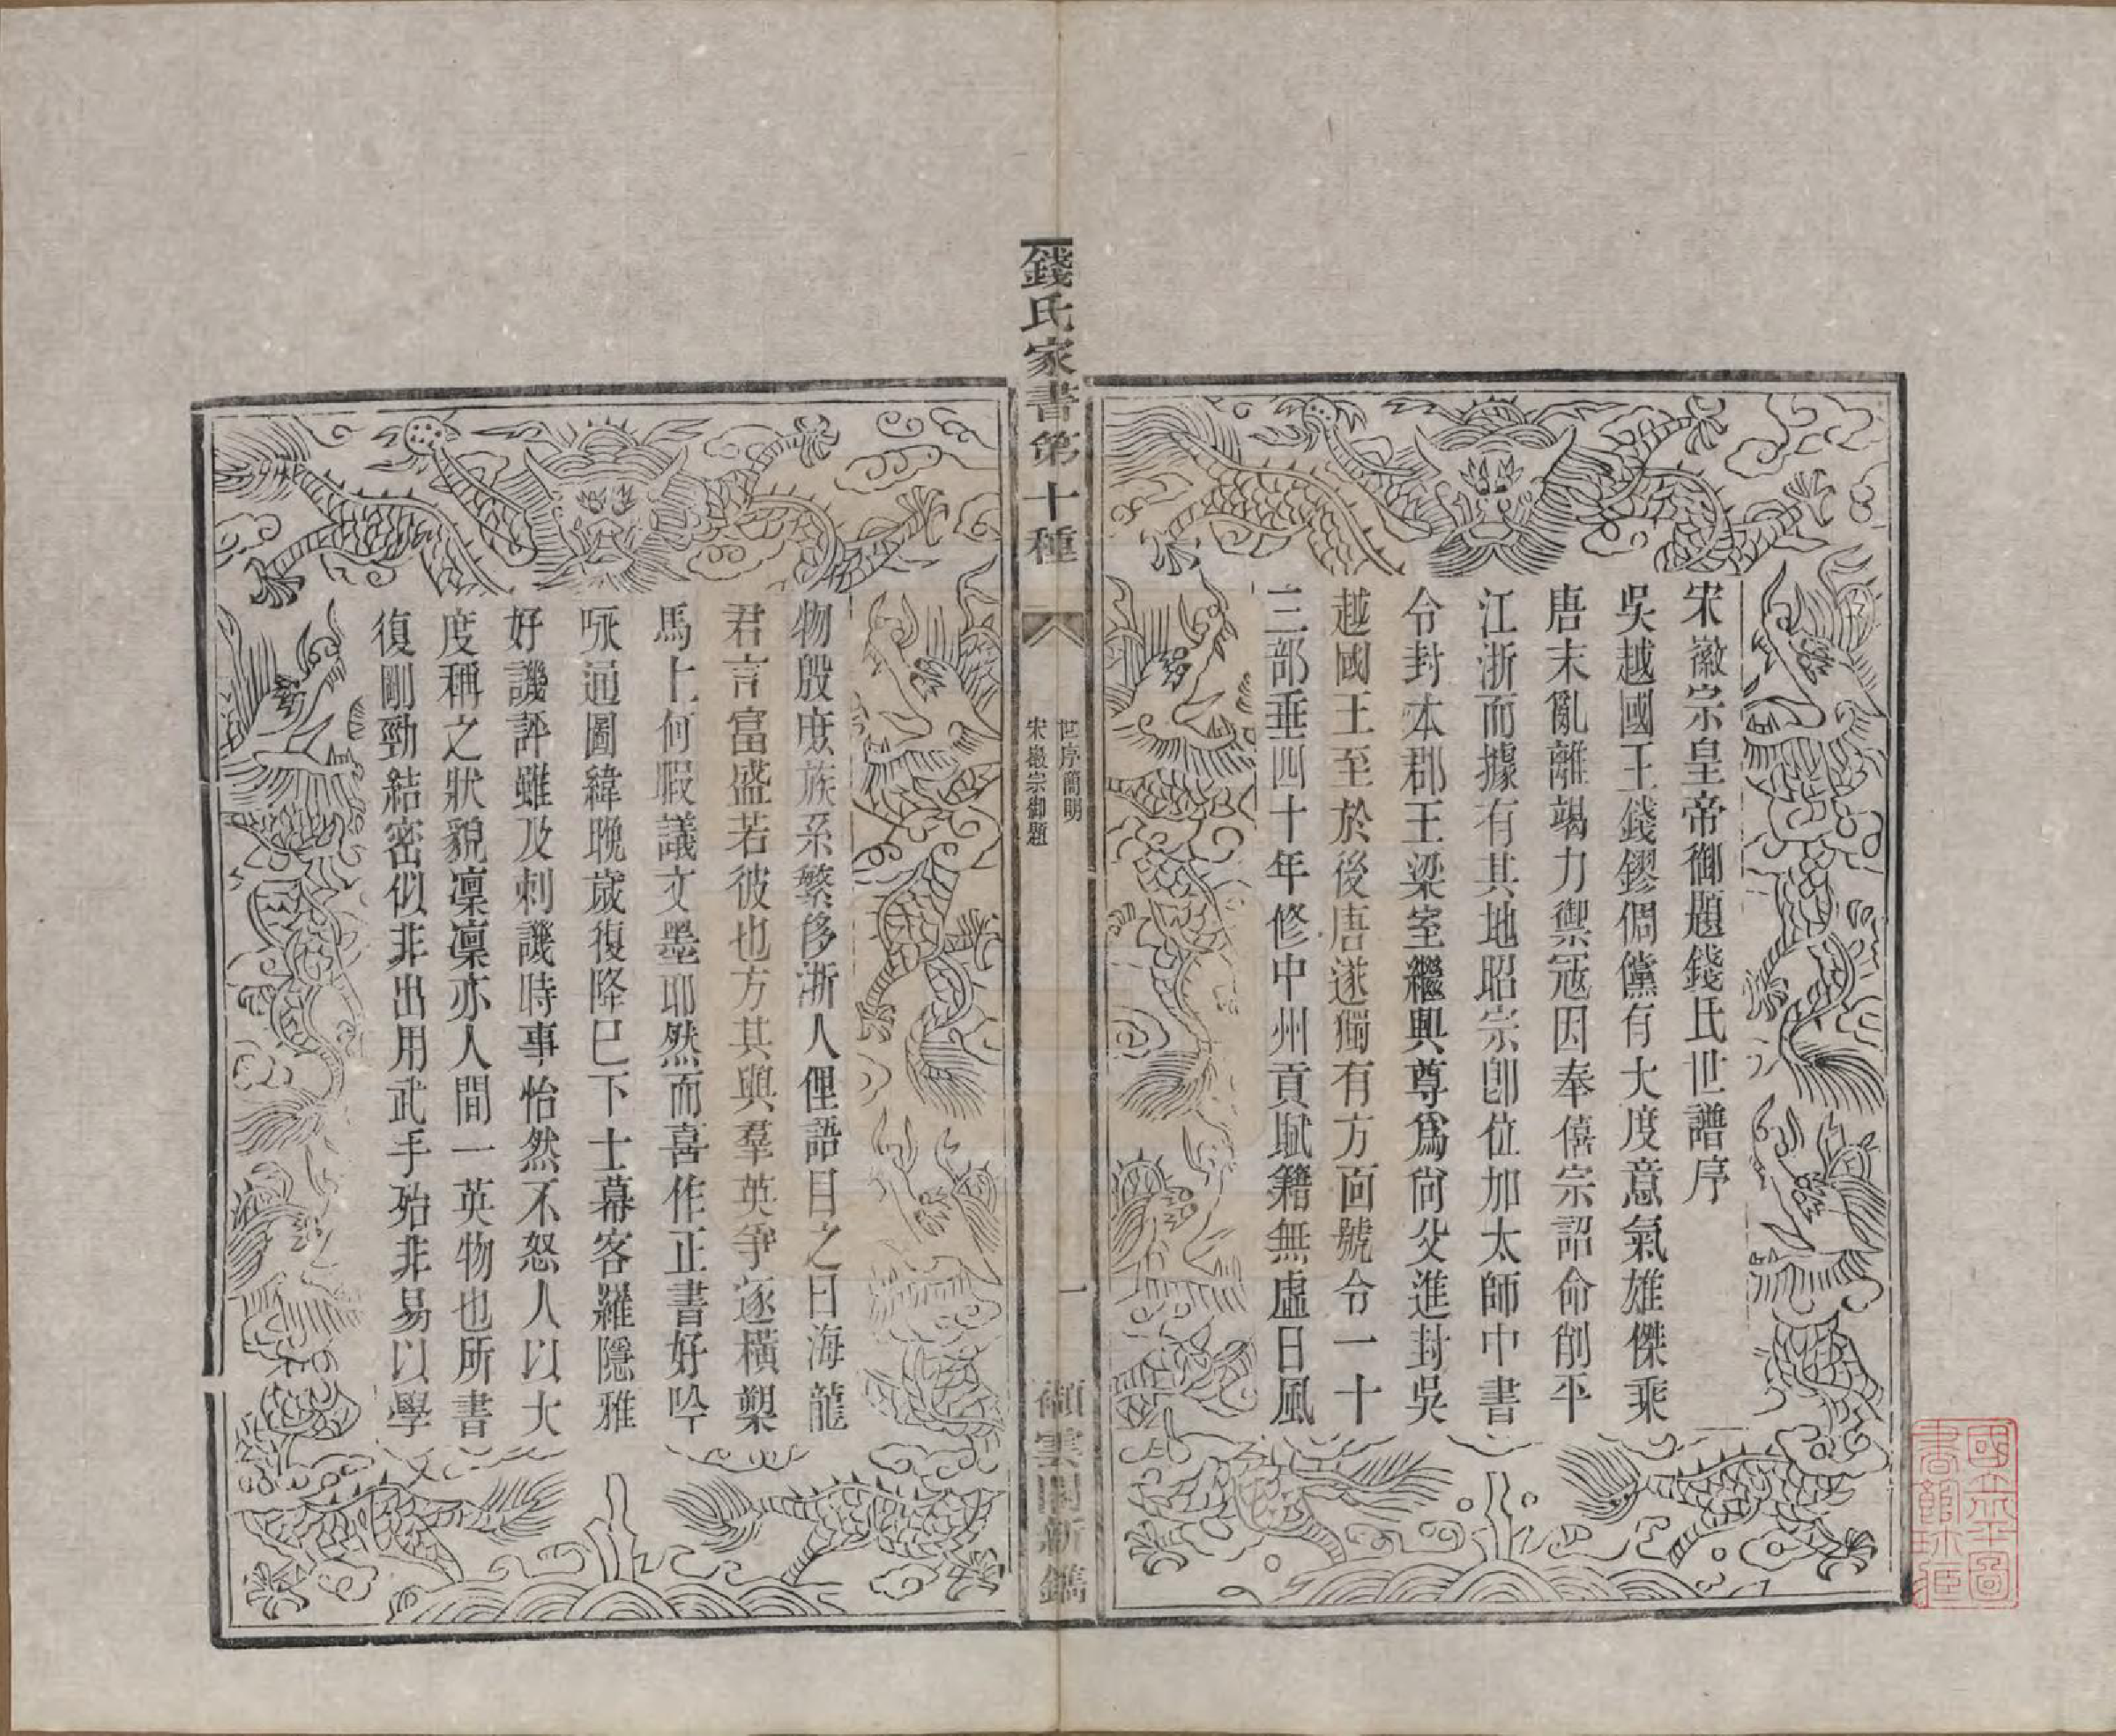 宋徽宗皇帝御題錢氏世譜序
吳越國王錢鏐倜儻有大度意氣雄傑乘
唐末亂離竭力禦冦因奉僖宗詔命削平
江浙而據有其地昭宗卽位加太師中書
令封本郡王梁室繼興尊爲尙父進封吳
越國王至於後唐遂獨有方面號令一十
三部垂四十年修中州貢賦籍無虛日風
錢氏家書第十種
世序簡明
宋徽宗御題
一
顧雲閣新鐫
物殷庶族系繁侈浙人俚語目之曰海龍
君言富盛若彼也方其與羣英爭逐橫槊
馬上何暇議文墨耶然而喜作正書好吟
咏通圖緯晚歲復降已下士幕客羅隱雅
好譏評雖及刺譏時事怡然不怒人以大
度稱之狀貌凜凜亦人間一英物也所書
復剛勁結密似非出用武手殆非易以學
國立北平圖
書館珍藏